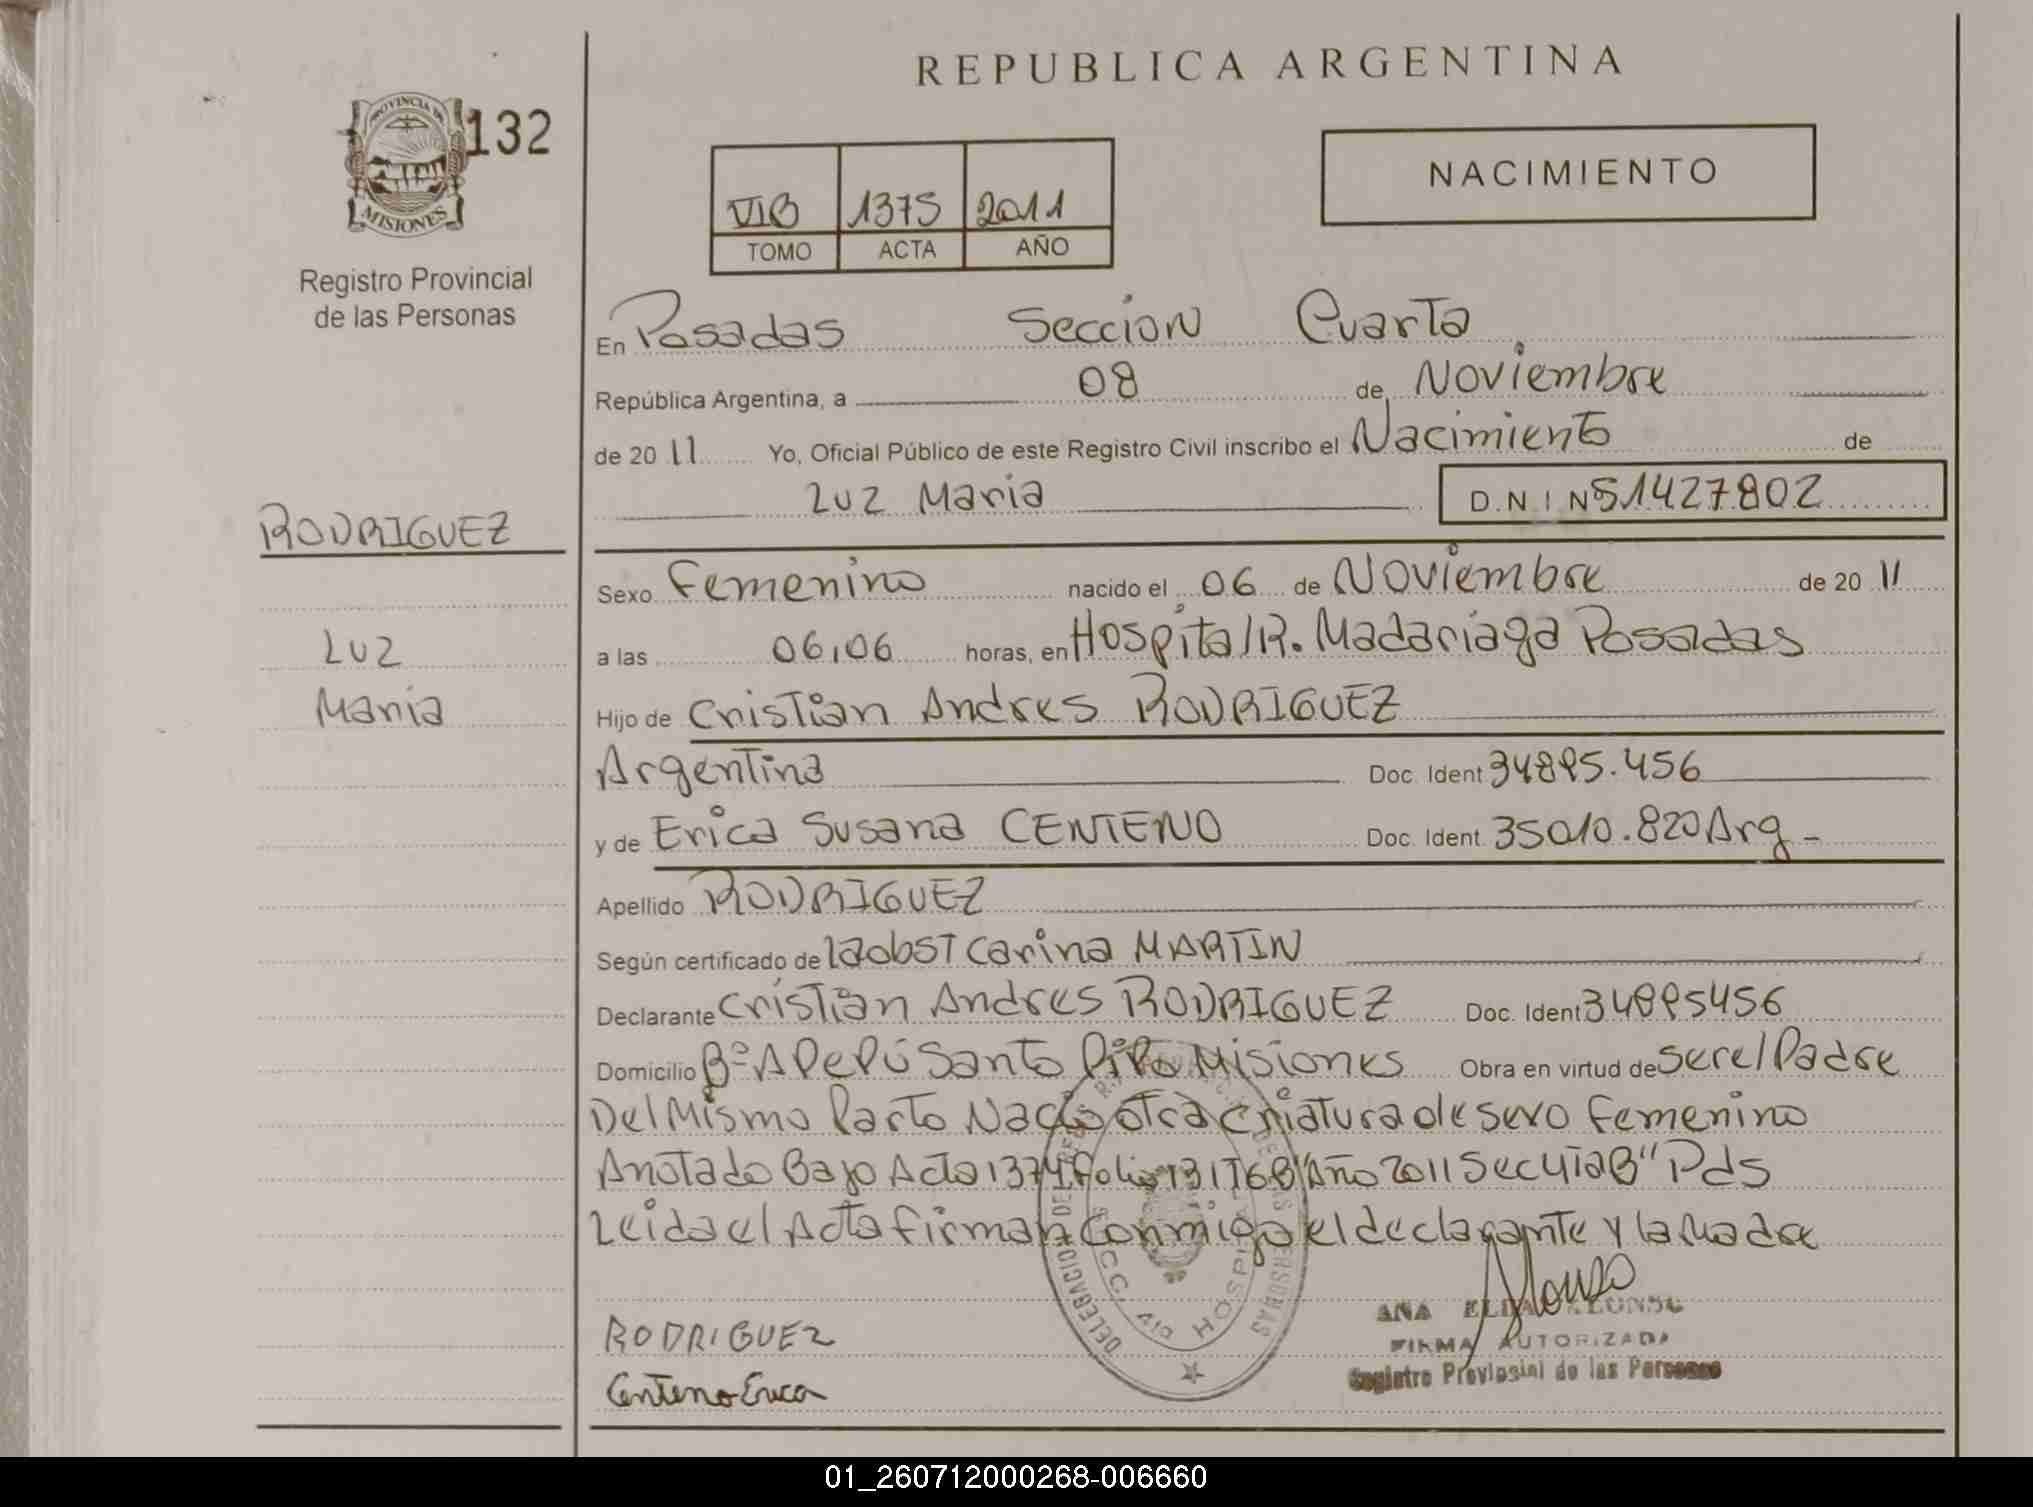 REPUBLICA ARGENTINA
PROVINCIA DE
MISIONES
132
Registro Provincial
de las Personas
VIB 1375 2011
TOMO ACTA AÑO
NACIMIENTO
En Posadas Seccion Cuarta
República Argentina, a 08 de Noviembre
de 2011 Yo, Oficial Público de este Registro Civil inscribo el Nacimiento de
Luz Maria D.N.I N 51427802
RODRIGUEZ
Luz
Maria
Sexo Femenino nacido el 06 de Noviembre de 2011
a las 06,06 horas, en Hospital R. Madariaga Posadas
Hijo de Cristian Andres RODRIGUEZ
Argentina Doc. Ident 34895.456
y de Erica Susana CENTENO Doc. Ident. 35010.820 Arg -
Apellido RODRIGUEZ
Según certificado de la obst Carina MARTIN
Declarante Cristian Andres RODRIGUEZ Doc. Ident 34895456
Domicilio Bº APEPÚ Santo Pipo Misiones Obra en virtud de ser el Padre
Del Mismo Parto Nacio otra Criatura de sexo Femenino
Anotado Bajo Acta 1374 Folio 131 T6B Año 2011 Sec 4ta B" Pds
Leida el Acta firman Conmigo el declarante y la Madre
RODRIGUEZ
Centeno Erica
ANA ELIDA ALONSO
FIRMA AUTORIZADA
Registro Provincial de las Personas
DELEGACION DE REGIS
DE LAS PERSONAS
SECC. 4ta HOSPITAL
01_260712000268-006660